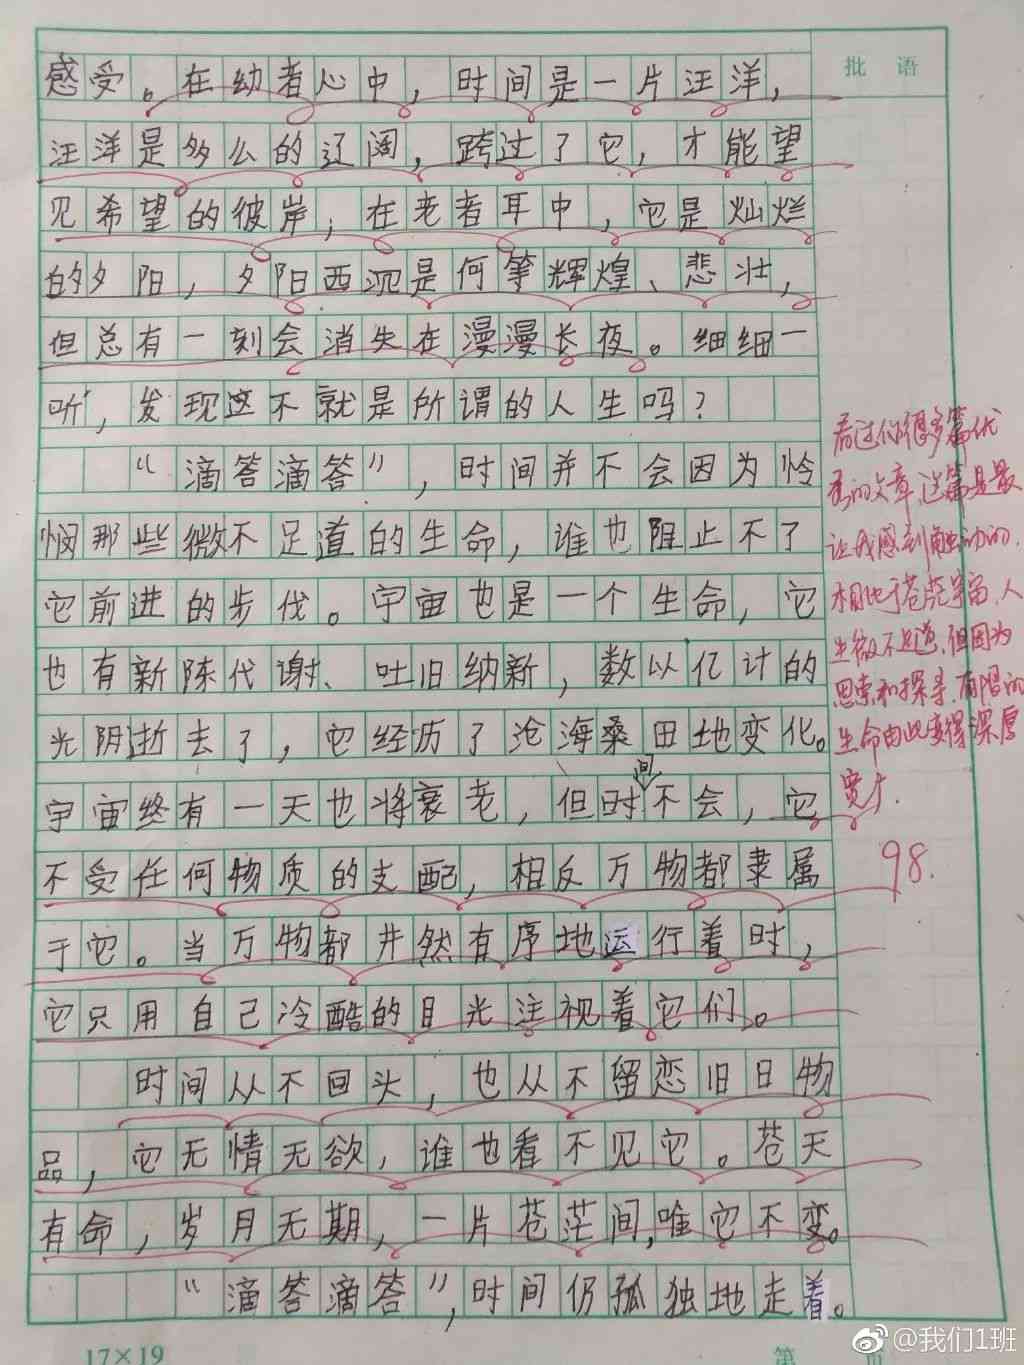 批语
感受。在幼者心中，时间是一片汪洋，
汪洋是多么的辽阔，跨过了它，才能望
见希望的彼岸；在老者耳中，它是灿烂
的夕阳，夕阳西沉是何等辉煌、悲壮，
但总有一刻会消失在漫漫长夜。细细一
听，发现这不就是所谓的人生吗？
“滴答滴答”，时间并不会因为怜
悯那些微不足道的生命，谁也阻止不了
它前进的步伐。宇宙也是一个生命，它
也有新陈代谢、吐旧纳新，数以亿计的
光阴逝去了，它经历了沧海桑田地变化。
宇宙终有一天也将衰老，但时间不会，它
不受任何物质的支配，相反万物都隶属
于它。当万物都井然有序地运行着时，
它只用自己冷酷的目光注视着它们。
时间从不回头，也从不留恋旧日物
品，它无情无欲，谁也看不见它。苍天
有命，岁月无期，一片苍茫间，唯它不变。
“滴答滴答”，时间仍孤独地走着。
看过你很多篇优
秀的文章，这篇是最
让我感到触动的，
相比于苍茫宇宙，人
生微不足道，但因为
思索和探寻，有限的
生命由此变得深厚
宽广．
98.
17×19
第 页
@我们1班